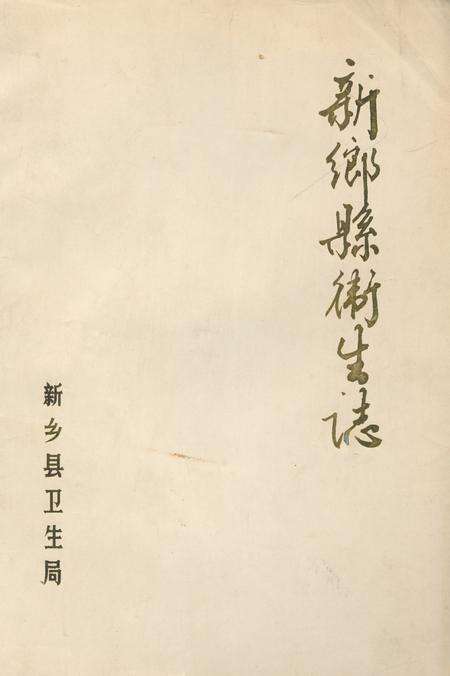 新鄉縣衛生誌
新乡县卫生局